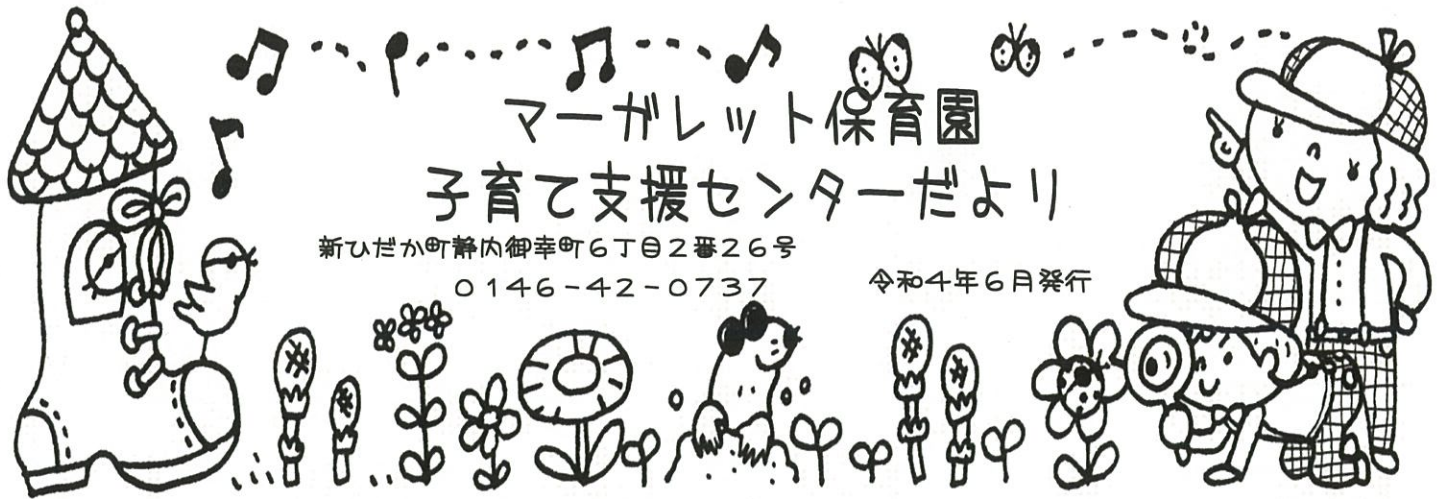 マーガレット保育園
子育て支援センターだより
新ひだか町静内御幸町6丁目2番26号
0146-42-0737
令和4年6月発行